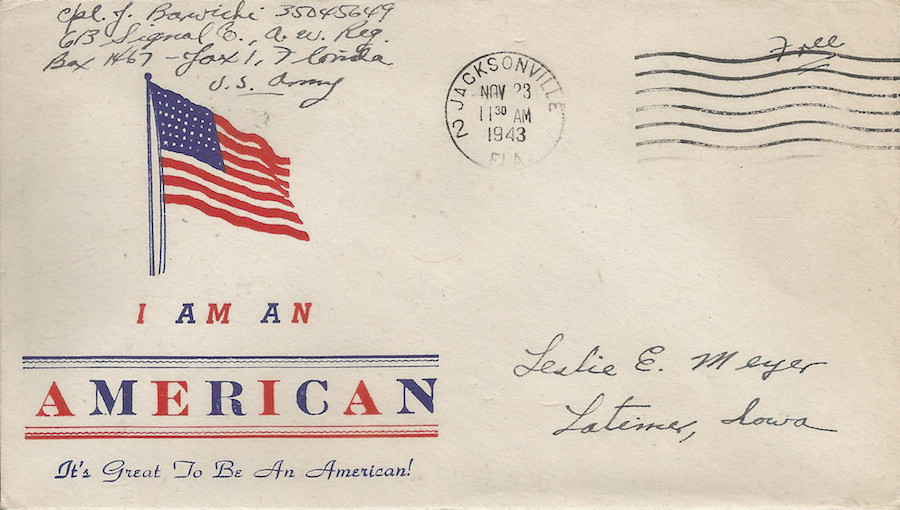 Cpl. J. Barwicki 35045649
613 Signal C., A. W. Reg.
Box 1467 - Jax 1, Florida
U.S. Army
JACKSONVILLE
2
NOV 23
11 30 AM
1943
FLA
Free
I AM AN
AMERICAN
It's Great To Be An American!
Leslie E. Meyer
Latimer, Iowa